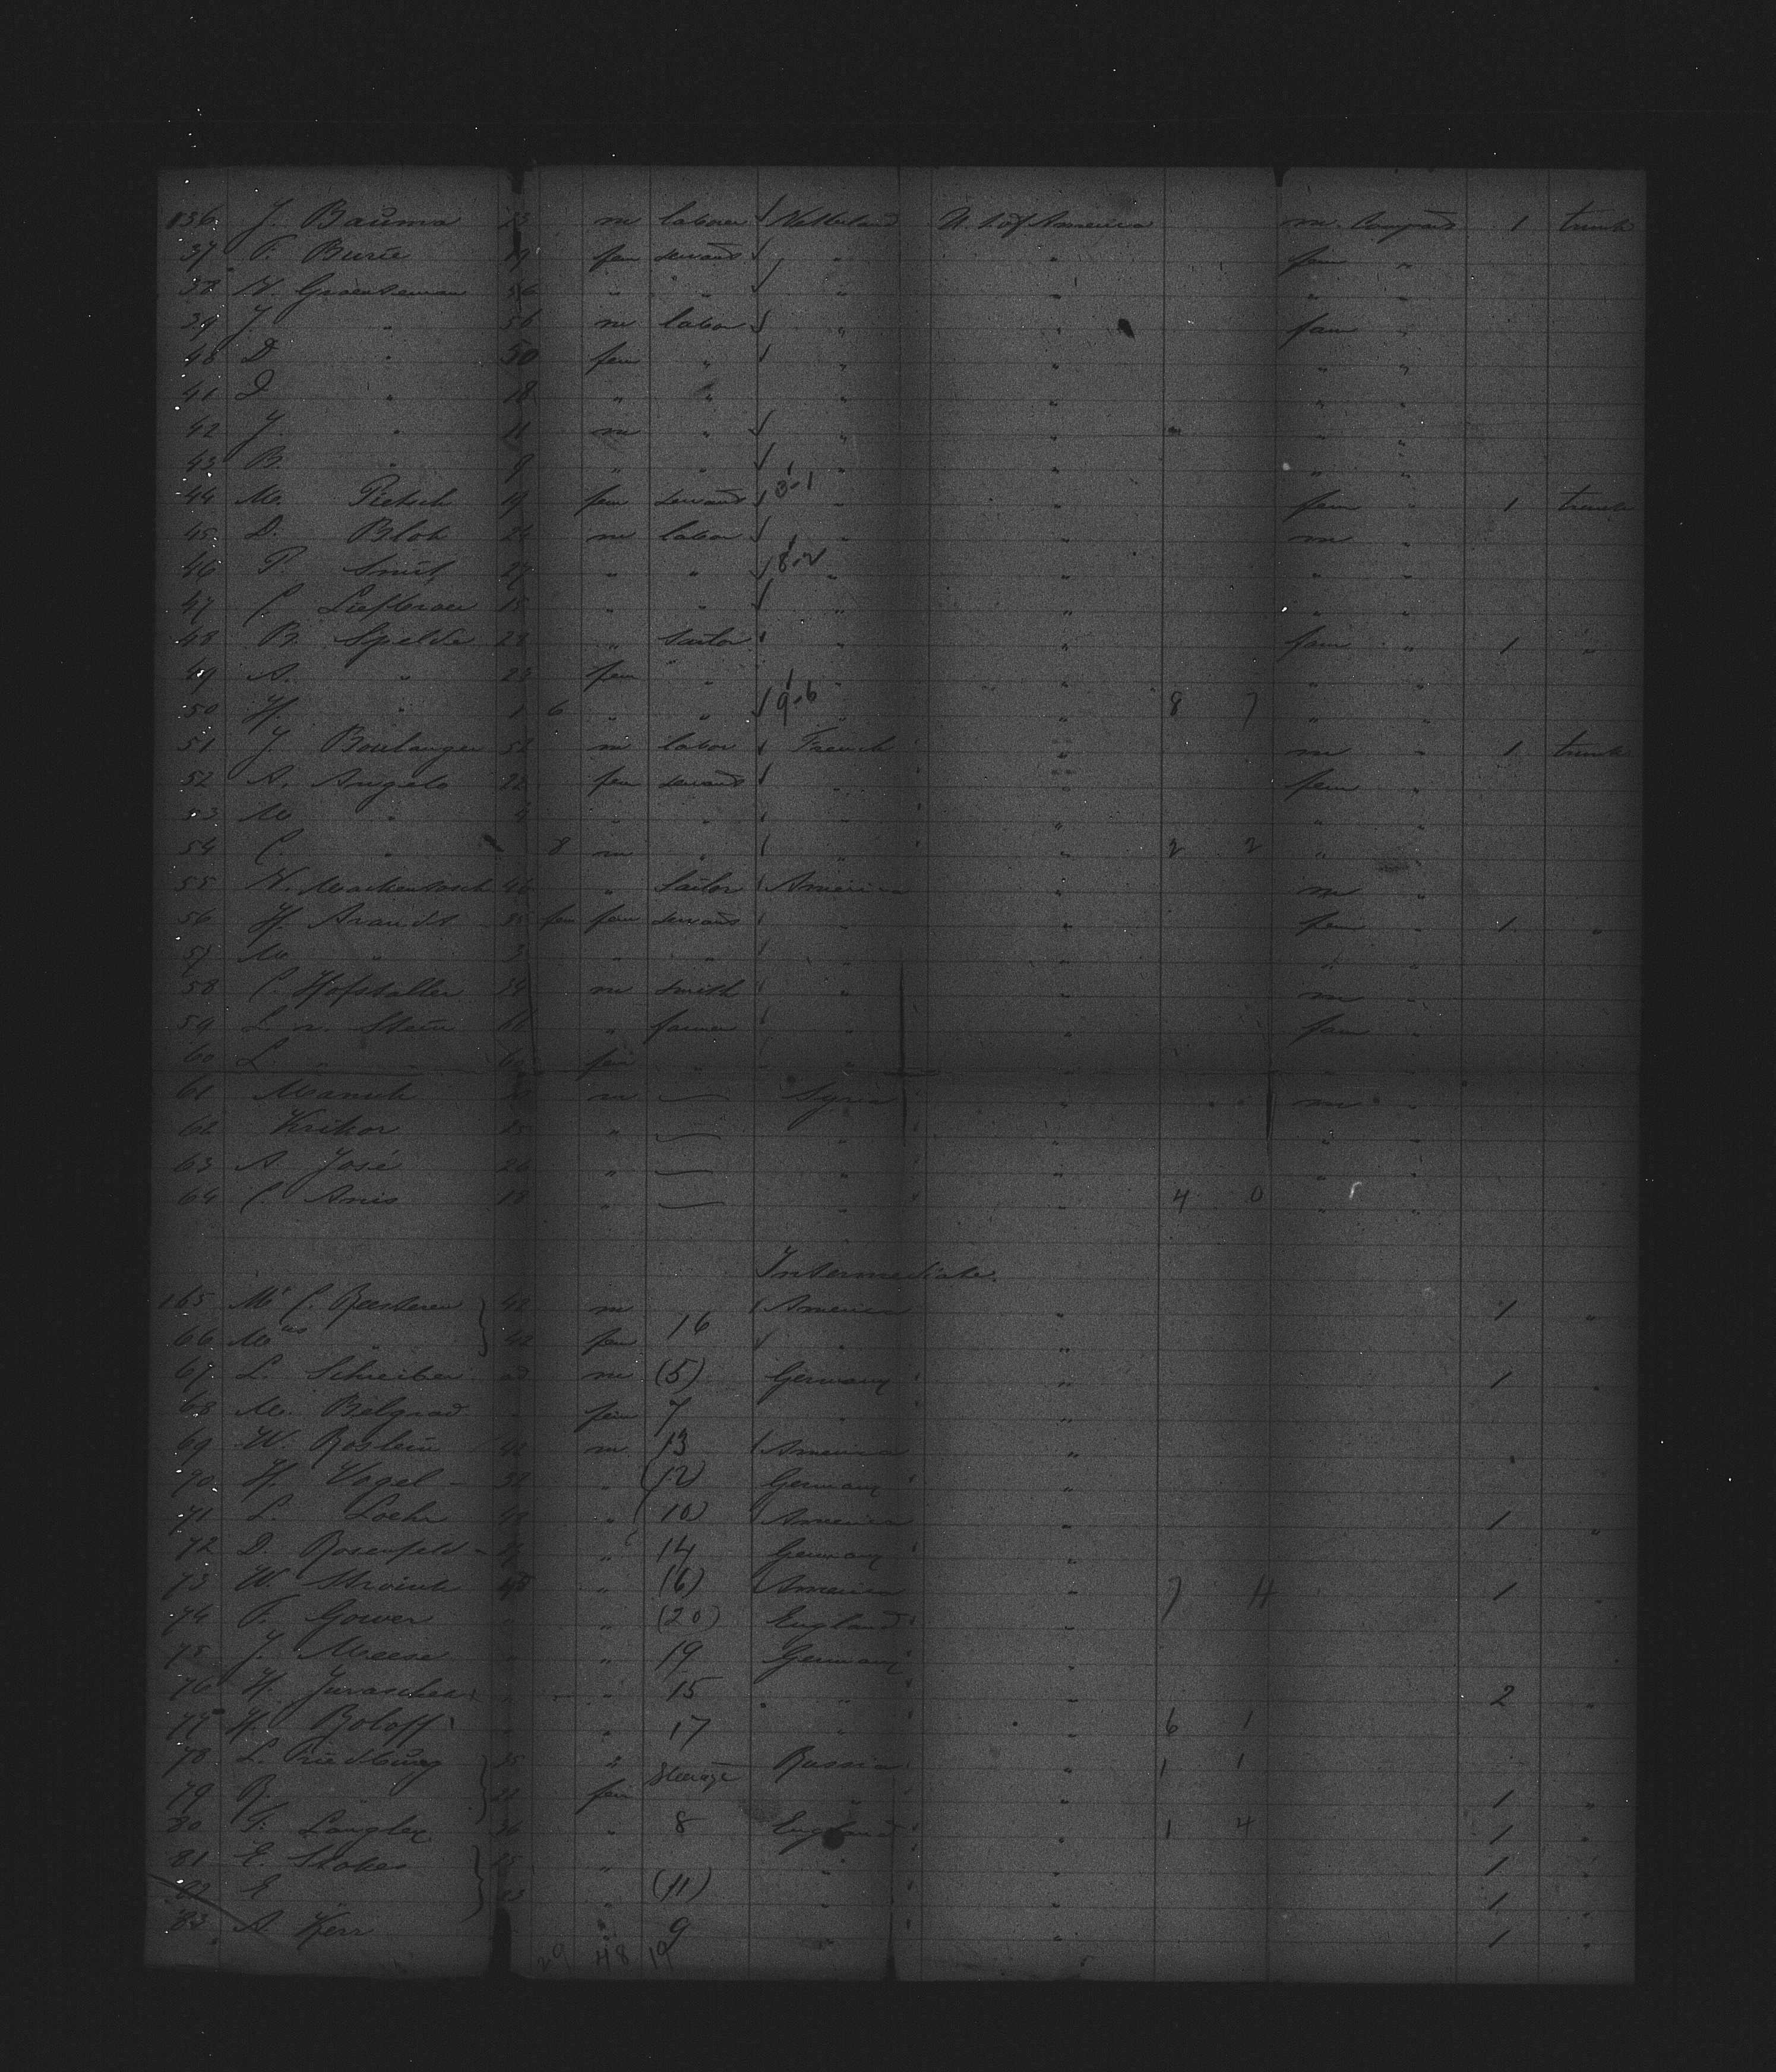 136. J. Bauma 23 m laborer √ Netherland U. S. of America m. Compart 1 trunk
37 F. Burie 19 fem servant √ " " fem "
38 H. Groenteman 56 " " " √ " " " "
39 J. " 56 m labor √ " " fam "
40 D " 50 fem " " " " "
41 D " 18 " " " " " "
42 J. " 11 m " √ " " " "
43 B. " 9 " " √ " " " "
44 M. Pietsch 19 fem servant 3-1 " " fem " 1 trunk
45. D. Blok 24 m labor √ " " m "
46 P. Smit 27 " " √ 8-2 " " " "
47 C. Liefbroer 15 " " √ " " " "
48 B. Spelde 28 " Sailor " " fam " 1 "
49 A. " 23 fem " " " " "
50 H. " 1 6 " " √ 9-6 " " 8 7 " "
51 J. Boulanger 52 m labor French " m " 1 trunk
52 A. Angelo 22 fem servant " " fem "
53 M " 4 " " " " " "
54 C. " 8 m " " " 2 2 "
55 W. Mackentosch 46 " Sailor America " m "
56 H. Arandt 35 fem fem servant " " fem " 1 "
57 M " 3 " " " " " "
58 C. Hofstatter 24 m smith " " m "
59 L. v. Stein 66 " farmer " " fam "
60 L " " 60 fem " " " " "
61 Manuk m Syria " m "
62 Krikor 25 " " " " "
63 A. José 26 " " " " "
64 C. Anis 18 " " " 4 0 " "
Intermediate.
165 Mr C. Reesteren 48 m America " 1 "
66 Mrs " 42 fem 16 √ " "
67. L. Schreiber m (5) Germany " 1 "
68 M. Belgrad fem 7 " "
69 W. Roslein 42 m 13 America "
70. H. Vogel 38 " (12) Germany "
71 L. Loehr 48 " 10) America " 1 "
72 D. Rosenfeld " 14 Germany "
73 W. Stroink 45 " (6) America " 7 H 1 "
74 F. Gower " " (20) England "
75 J. Meese " " 19 Germany "
76 H. Juraschek " " 15 " " 2 "
77 H. Boloff " " 17 " " 6 1
78 L. Friedburg 35 " Steerage Russia " 1 1
79 R. " 22 fem " " 1 "
80 G. Langley 36 " 8 England " 1 4 1 "
81 E. Stokes " " " 1 "
82 E " 23 " (11) " " 1 "
83 A. Kerr " 9 " " 1 "
29 48 19